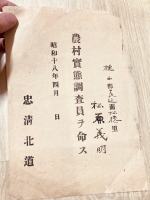 槐山郡長延面松德里
松原義明
農村實態調査員ヲ命ス
昭和十八年四月 日
忠淸北道